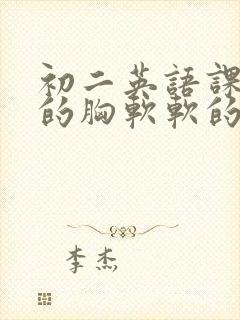 初二英語課
的胸軟軟的
李杰